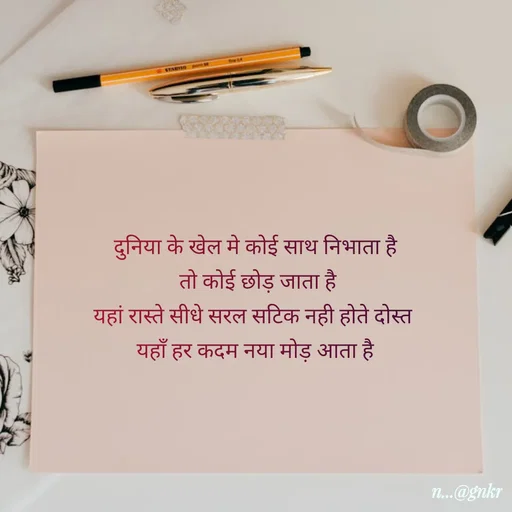 दुनिया के खेल मे कोई साथ निभाता है
तो कोई छोड़ जाता है
यहां रास्ते सीधे सरल सटिक नही होते दोस्त
यहाँ हर कदम नया मोड़ आता है
n...@gnkr